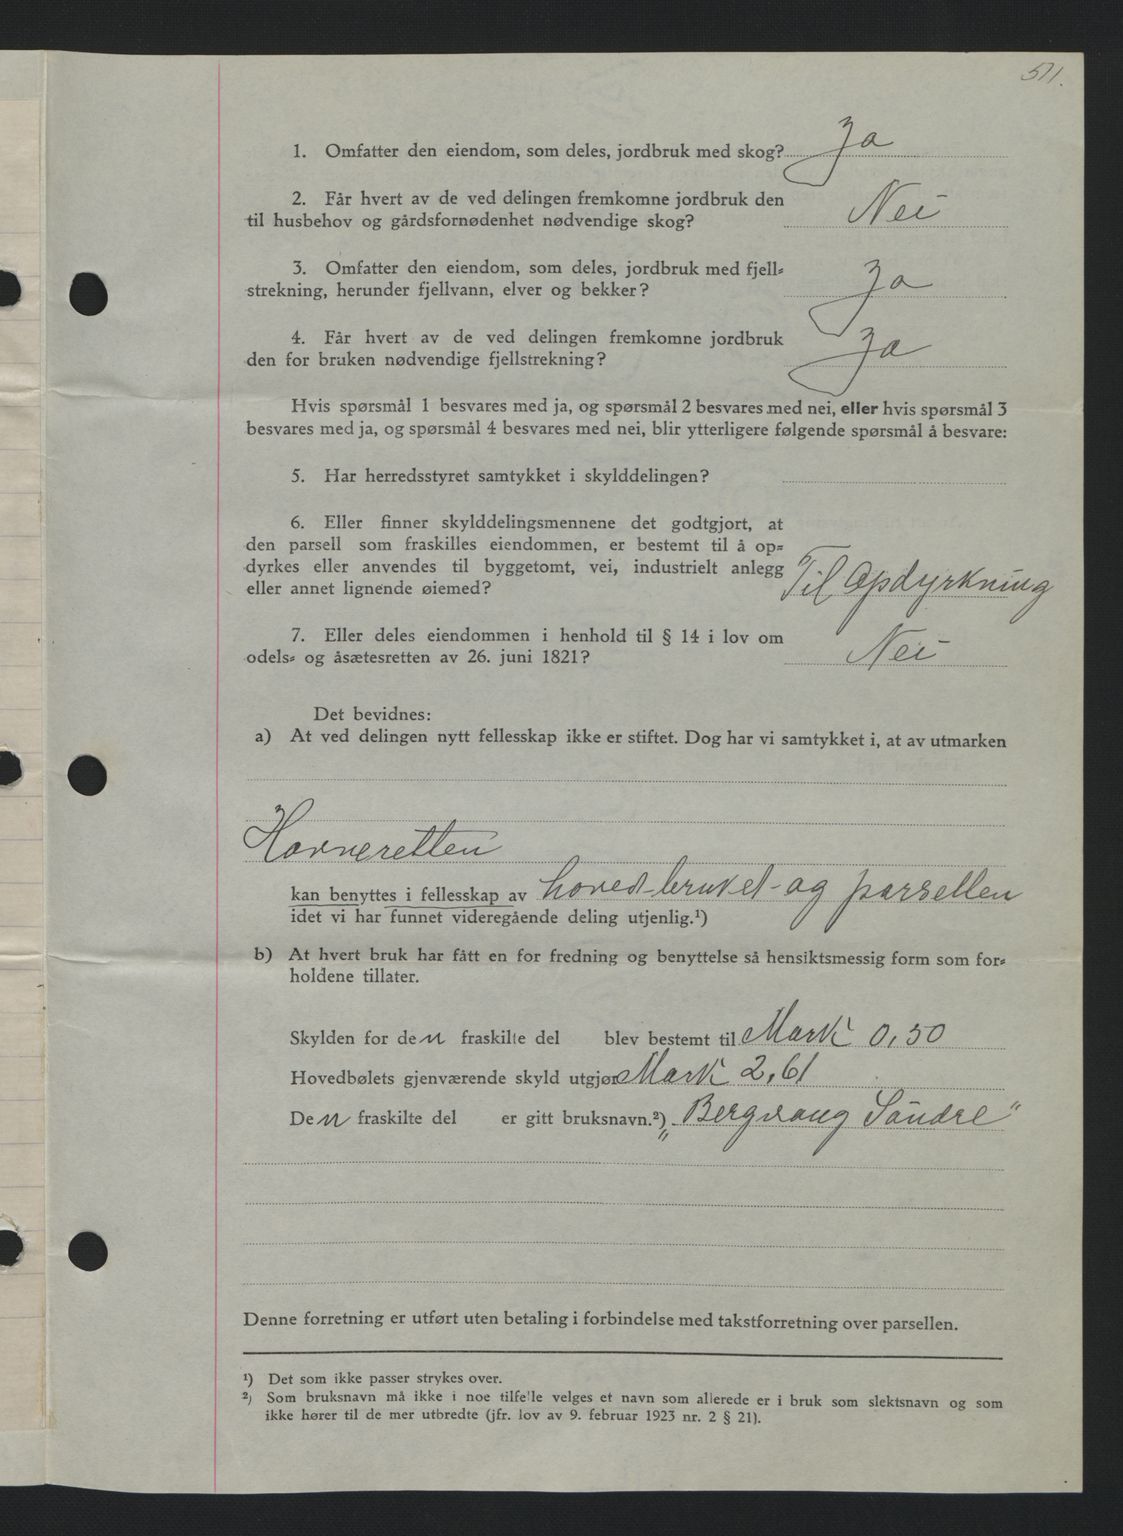 511.
1. Omfatter den eiendom, som deles, jordbruk med skog? Ja
2. Får hvert av de ved delingen fremkomne jordbruk den
til husbehov og gårdsfornødenhet nødvendige skog? Nei
3. Omfatter den eiendom, som deles, jordbruk med fjell-
strekning, herunder fjellvann, elver og bekker? Ja
4. Får hvert av de ved delingen fremkomne jordbruk
den for bruken nødvendige fjellstrekning? Ja
Hvis spørsmål 1 besvares med ja, og spørsmål 2 besvares med nei, eller hvis spørsmål 3
besvares med ja, og spørsmål 4 besvares med nei, blir ytterligere følgende spørsmål å besvare:
5. Har herredsstyret samtykket i skylddelingen?
6. Eller finner skylddelingsmennene det godtgjort, at
den parsell som fraskilles eiendommen, er bestemt til å op-
dyrkes eller anvendes til byggetomt, vei, industrielt anlegg
eller annet lignende øiemed? Til Opdyrkning
7. Eller deles eiendommen i henhold til § 14 i lov om
odels- og åsætesretten av 26. juni 1821? Nei
Det bevidnes:
a) At ved delingen nytt fellesskap ikke er stiftet. Dog har vi samtykket i, at av utmarken
Havneretten
kan benyttes i fellesskap av hoved-bruket-og parsellen
idet vi har funnet videregående deling utjenlig.¹)
b) At hvert bruk har fått en for fredning og benyttelse så hensiktsmessig form som for-
holdene tillater.
Skylden for den fraskilte del blev bestemt til Mark 0,50
Hovedbølets gjenværende skyld utgjør Mark 2,61
Den fraskilte del er gitt bruksnavn.²) „Bergvang Söndre"
Denne forretning er utført uten betaling i forbindelse med takstforretning over parsellen.
¹) Det som ikke passer strykes over.
²) Som bruksnavn må ikke i noe tilfelle velges et navn som allerede er i bruk som slektsnavn og som
ikke hører til de mer utbredte (jfr. lov av 9. februar 1923 nr. 2 § 21).